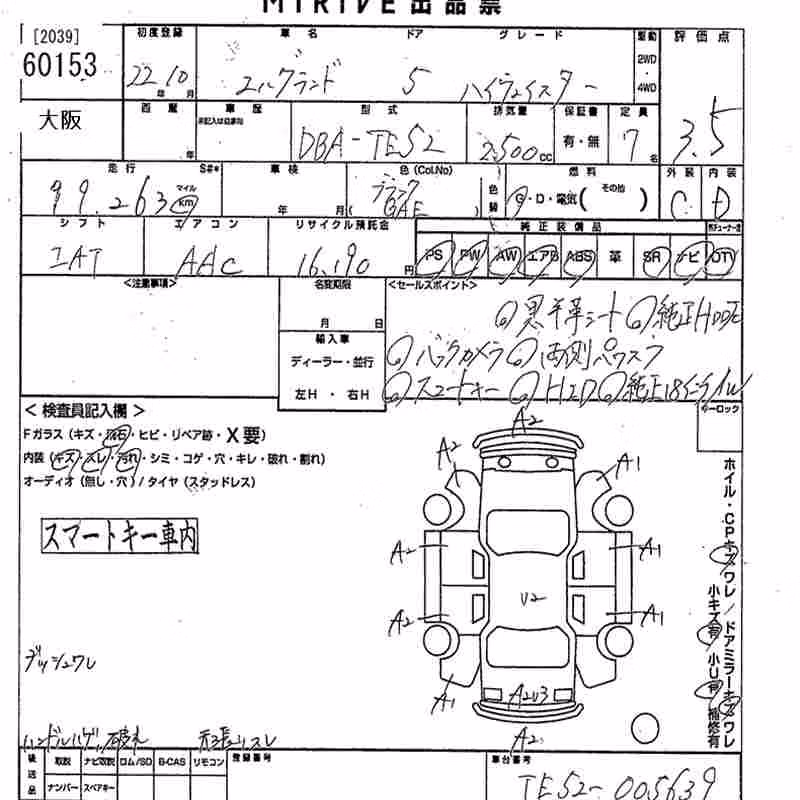 MIRIVE 出品票
[2039]
60153
大阪
初度登録 車名 ドア グレード 駆動 評価点
22年10月 エルグランド 5 ハイウェイスター 2WD・4WD 3.5
西暦 車歴 型式 排気量 保証書 定員
年 DBA-TE52 2,500cc 有・無 7名
走行 S#* 車検 色(Col.No) 燃料 外装 内装
99,263 マイル km 年 月 ブラック (GAE) 色替 G・D・電気(その他 ) C D
シフト エアコン リサイクル預託金 純正装備品
IAT AAC 16,190円 PS PW AW エアB ABS 革 SR ナビ DTV
<注意事項> 名変期限 <セールスポイント>
月 日 ◎黒半革シート◎純正HDDナビ
輸入車 ◎バックカメラ◎両側パワスラ
ディーラー・並行
左H・右H ◎スマートキー ◎HID◎純正18インチAW
<検査員記入欄> キーロック
Fガラス(キズ・飛石・ヒビ・リペア跡・X要)
内装(キズ・スレ・汚れ・シミ・コゲ・穴・キレ・破れ・割れ)
オーディオ(無し・穴)/タイヤ(スタッドレス)
スマートキー車内
A2
A2 A1
A2 A1
U2
A2 A1
A1 A2U3
A2
ホイル・CPキズワレ/ドアミラーキズワレ
小キズ有 小U有 補修有
ダッシュワレ
ハンドルハゲ
後送品 取説 ナビ取説 ロム/SD B-CAS リモコン 登録番号 車台番号
ナンバー スペアキー TE52-005639